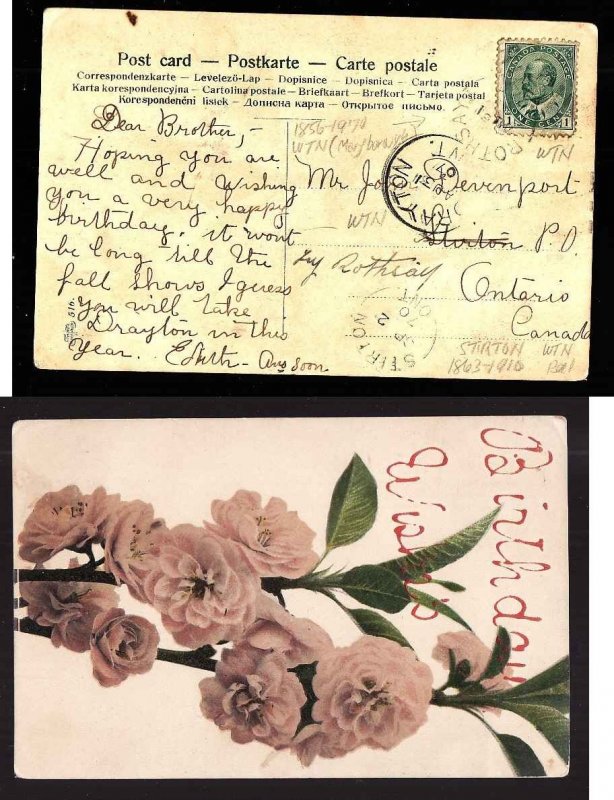 Post card — Postkarte — Carte postale
Correspondenzkarte — Levelező-Lap — Dopisnice — Dopisnica — Carta postala
Karta korespondencyjna — Cartolina postale — Briefkaart — Brefkort — Tarjeta postal
Korespondenční lístek — Дописна карта — Открытое письмо.
CANADA POSTAGE
1 ONE CENT 1
Dear Brother,-
Hoping you are
well and wishing
you a very happy
birthday, it wont
be long till the
fall shows I guess
You will take
Drayton in this
Year. Edith - Ans soon
1856-1970
WTN (Maryborough)
Mr John Devenport
WTN
Stirton P.O.
Try Rothsay
Ontario
Canada
WTN
DRAYTON
AU 31
ROTHSAY
ONT.
STIRTON
ONT.
SP 2
STIRTON WTN
1863-1910
516.
Birthday
Wishes